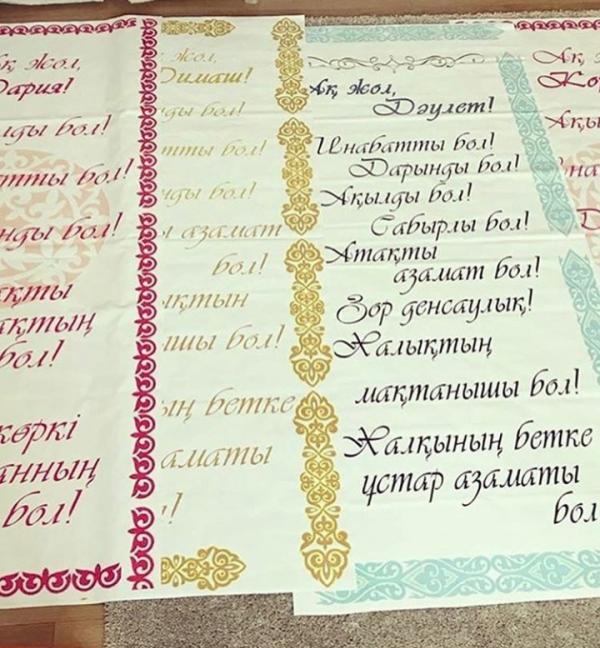 ол,
Дария!
лды бол!
тты бол!
нды бол!
қты
қтың
бол!
көркі
анның
бол!
жол,
Димаш!
лды бол!
тты бол!
нды бол!
ы азамат
бол!
ықтың
ышы бол!
ың бетке
аматы
!
Ақ жол,
Дәулет!
Инабатты бол!
Дарынды бол!
Ақылды бол!
Сабырлы бол!
Атақты
азамат бол!
Зор денсаулық!
Халықтың
мақтанышы бол!
Халқының бетке
ұстар азаматы
бол
Ақ жол,